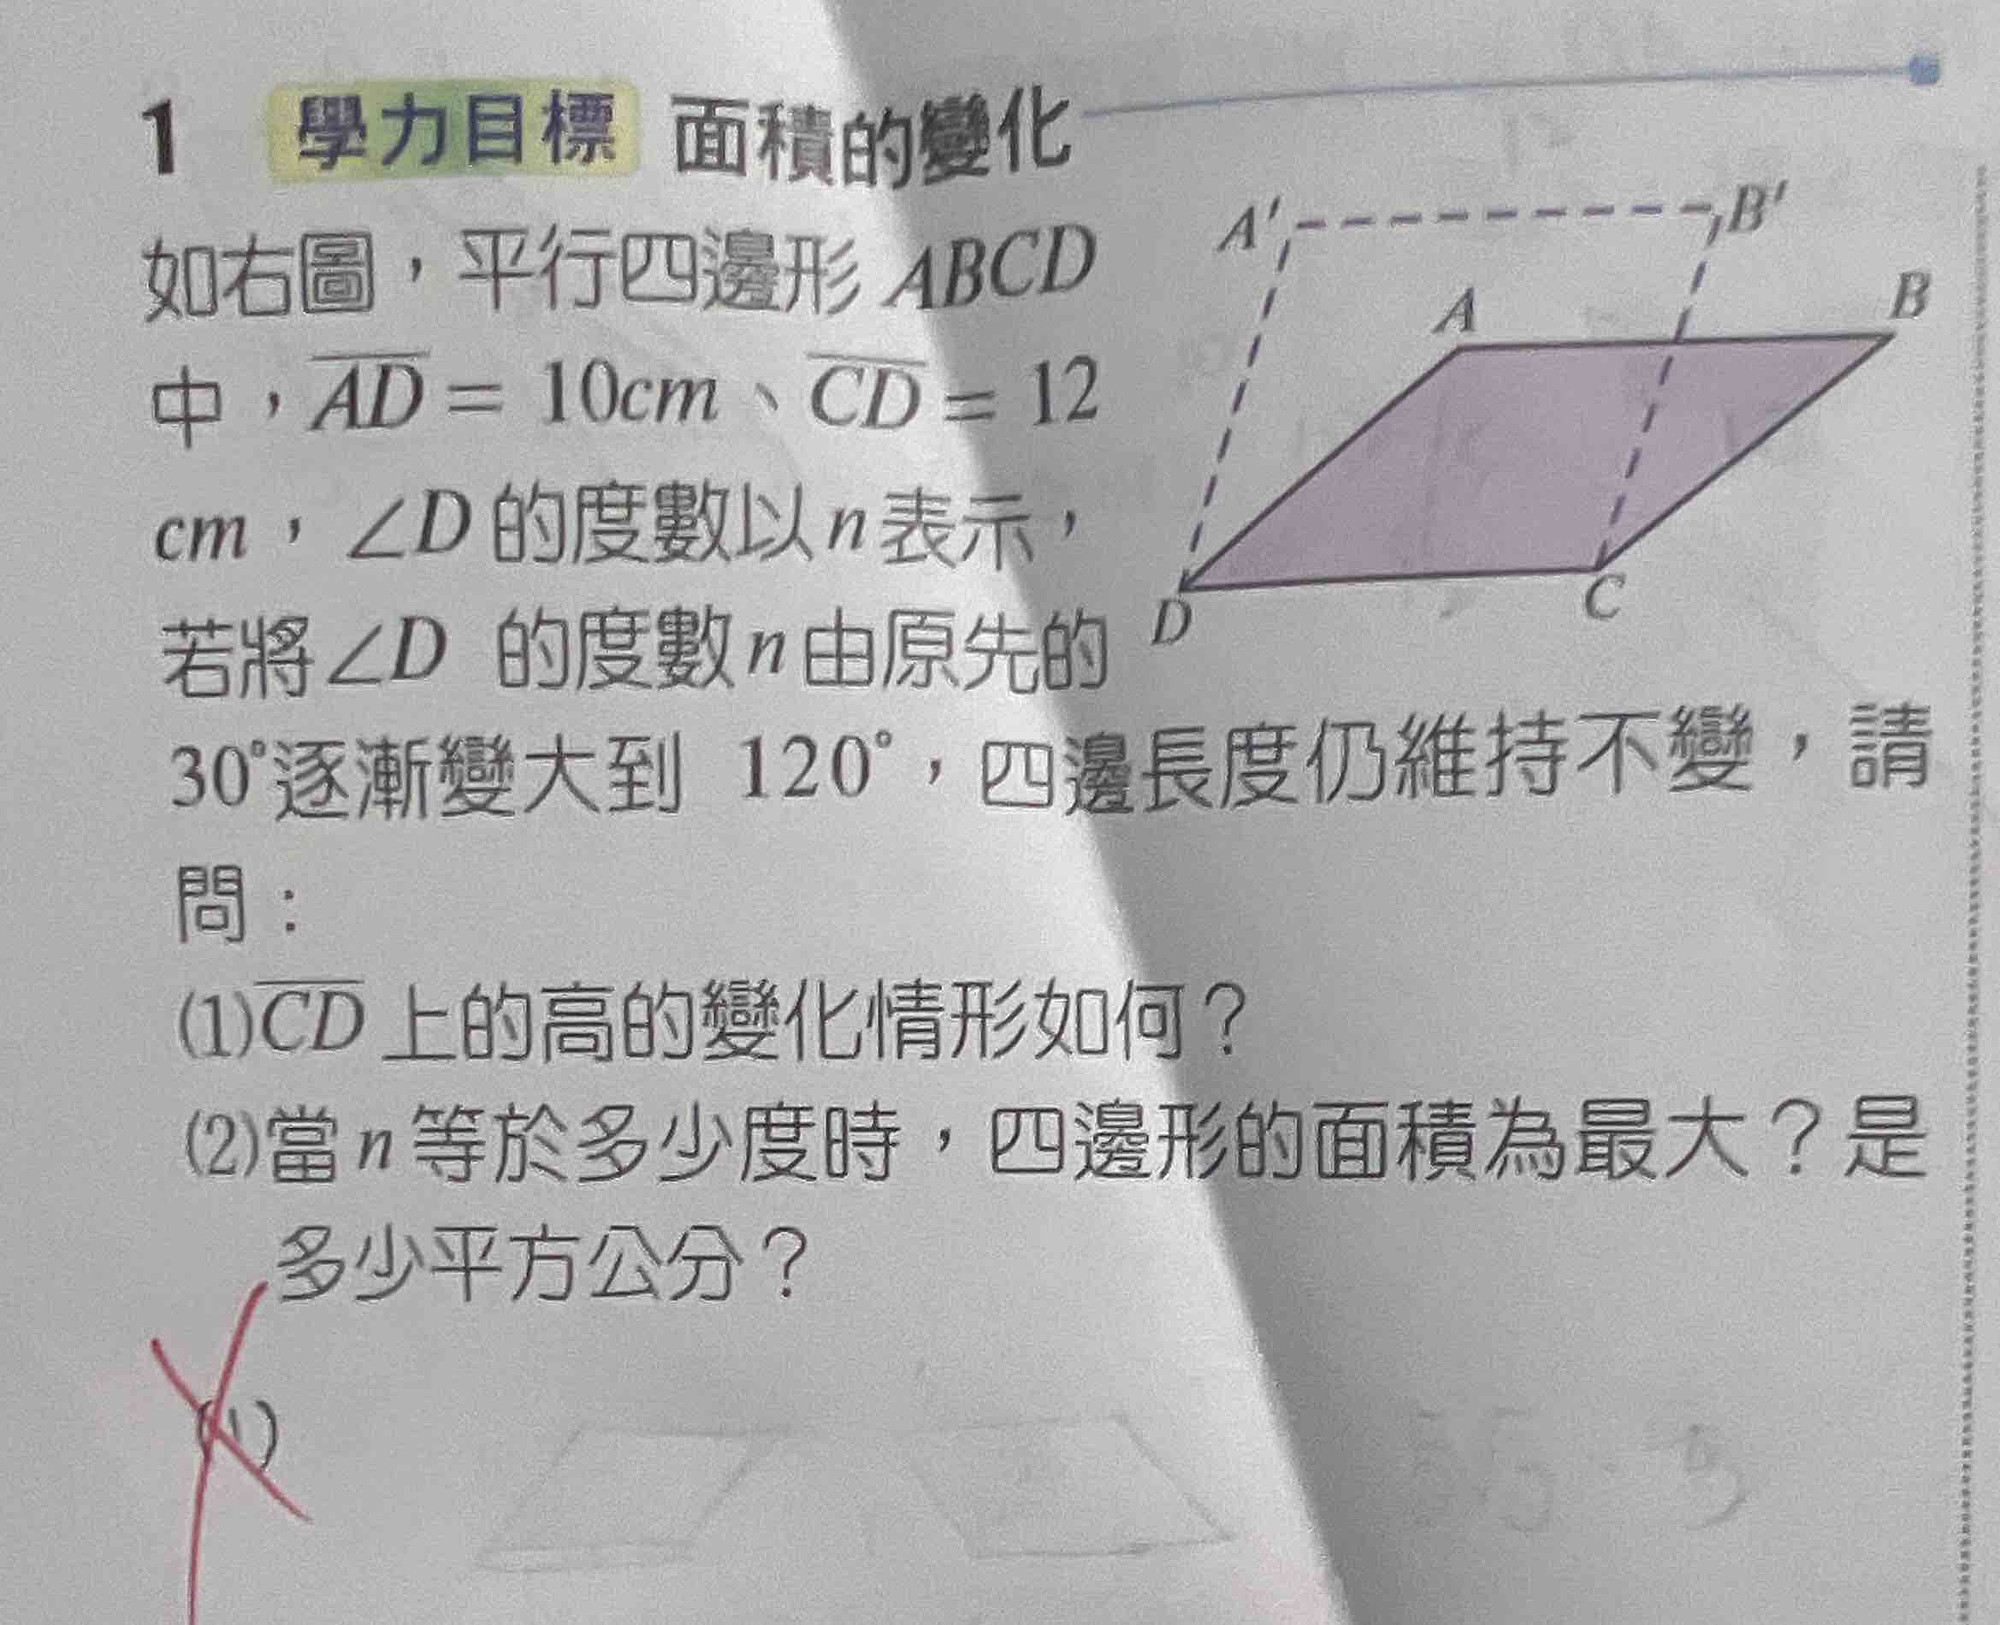 1 學力目標 面積的變化
如右圖，平行四邊形 ABCD
中，AD = 10cm、CD = 12
cm，∠D 的度數以 n 表示，
若將∠D 的度數 n 由原先的
30°逐漸變大到 120°，四邊長度仍維持不變，請
問：
(1)CD 上的高的變化情形如何？
(2)當 n 等於多少度時，四邊形的面積為最大？是
多少平方公分？
A' B'
A B
D C
(1)